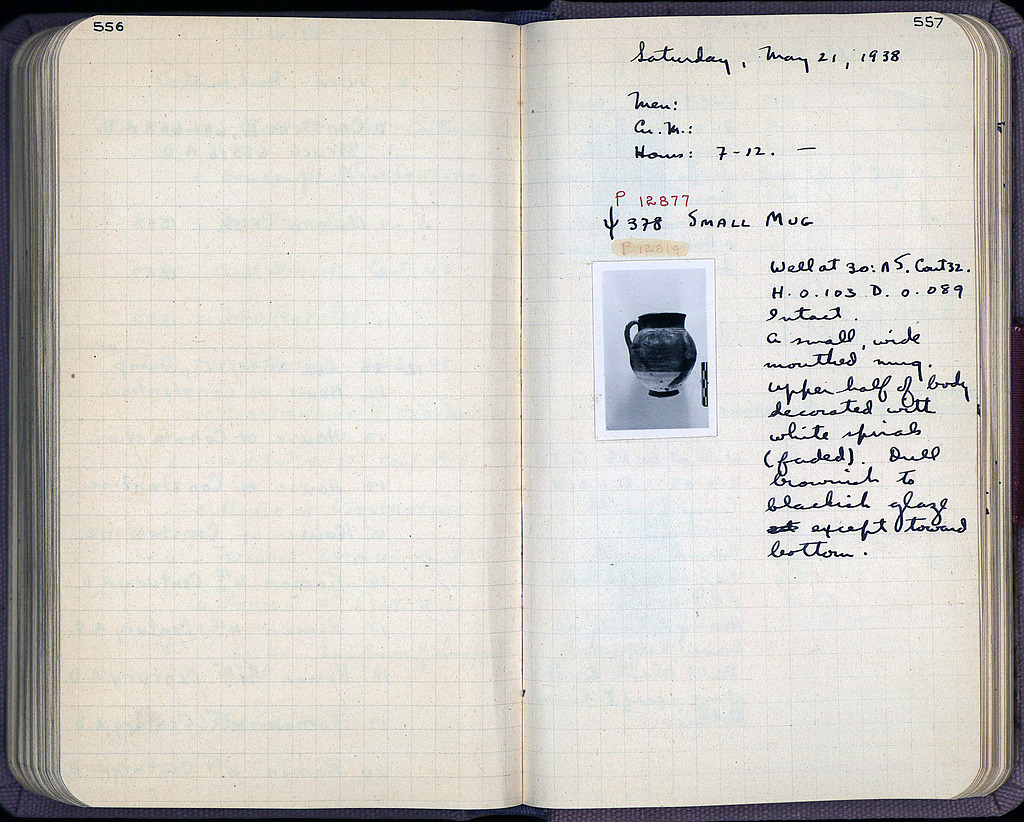 556
557
Saturday, May 21, 1938
Men:
Cu. M.:
Hours: 7-12. —
P 12877
Ψ 378 SMALL MUG
P 12814
Well at 30: ΛΣ. Cont 32.
H. 0.103 D. 0.089
Intact.
A small, wide
mouthed mug.
Upper half of body
decorated with
white spirals
(faded). Dull
brownish to
blackish glaze
except toward
bottom.